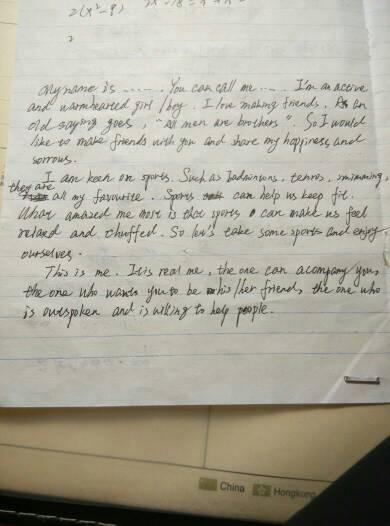 2(x²-9)
2
My name is ...... You can call me ..... I'm an active
and warmhearted girl/boy. I love making friends. As an
old saying goes, "All men are brothers". So I would
like to make friends with you and share my happiness and
sorrows.
I am keen on sports. Such as badmintons, tennis, swimming,
they are all my favourite. Sports can help us keep fit.
What amazed me most is that sports can make us feel
relaxed and chuffed. So let's take some sports and enjoy
ourselves.
This is me. It is real me, the one can acompany you,
the one who wants you to be his/her friend, the one who
is outspoken and is willing to help people.
China Hongkong